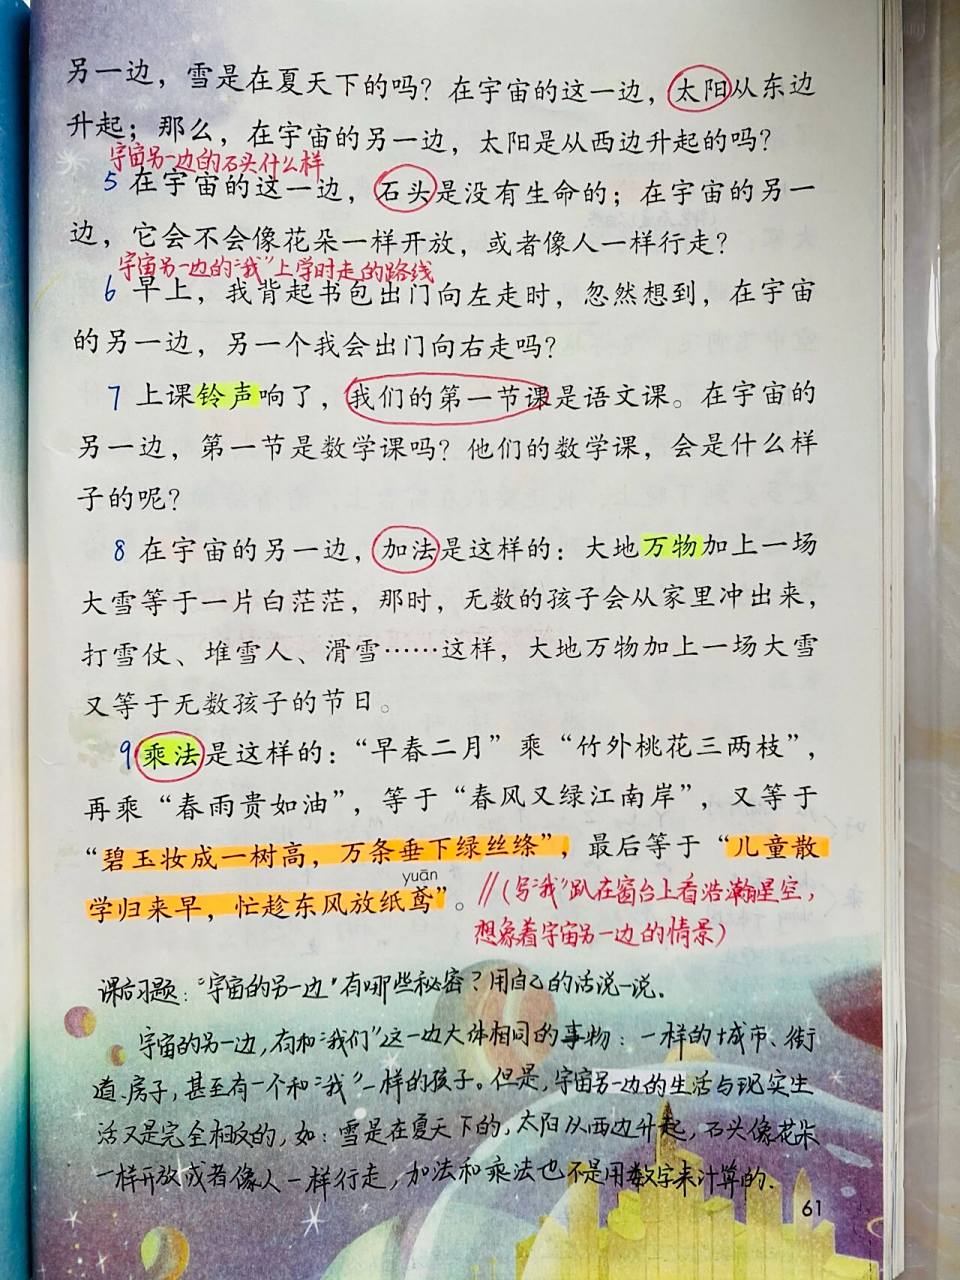 另一边，雪是在夏天下的吗？在宇宙的这一边，太阳从东边
升起；那么，在宇宙的另一边，太阳是从西边升起的吗？
宇宙另一边的石头什么样
5 在宇宙的这一边，石头是没有生命的；在宇宙的另一
边，它会不会像花朵一样开放，或者像人一样行走？
宇宙另一边的“我”上学时走的路线
6 早上，我背起书包出门向左走时，忽然想到，在宇宙
的另一边，另一个我会出门向右走吗？
7 上课铃声响了，我们的第一节课是语文课。在宇宙的
另一边，第一节是数学课吗？他们的数学课，会是什么样
子的呢？
8 在宇宙的另一边，加法是这样的：大地万物加上一场
大雪等于一片白茫茫，那时，无数的孩子会从家里冲出来，
打雪仗、堆雪人、滑雪……这样，大地万物加上一场大雪
又等于无数孩子的节日。
9 乘法是这样的：“早春二月”乘“竹外桃花三两枝”，
再乘“春雨贵如油”，等于“春风又绿江南岸”，又等于
“碧玉妆成一树高，万条垂下绿丝绦”，最后等于“儿童散
yuān
学归来早，忙趁东风放纸鸢”。
//（写“我”趴在窗台上看浩瀚星空，
想象着宇宙另一边的情景）
课后习题：“宇宙的另一边”有哪些秘密？用自己的话说一说。
宇宙的另一边，有和“我们”这一边大体相同的事物：一样的城市、街
道、房子，甚至有一个和“我”一样的孩子。但是，宇宙另一边的生活与现实生
活又是完全相反的，如：雪是在夏天下的，太阳从西边升起，石头像花朵
一样开放或者像人一样行走，加法和乘法也不是用数字来计算的.
61